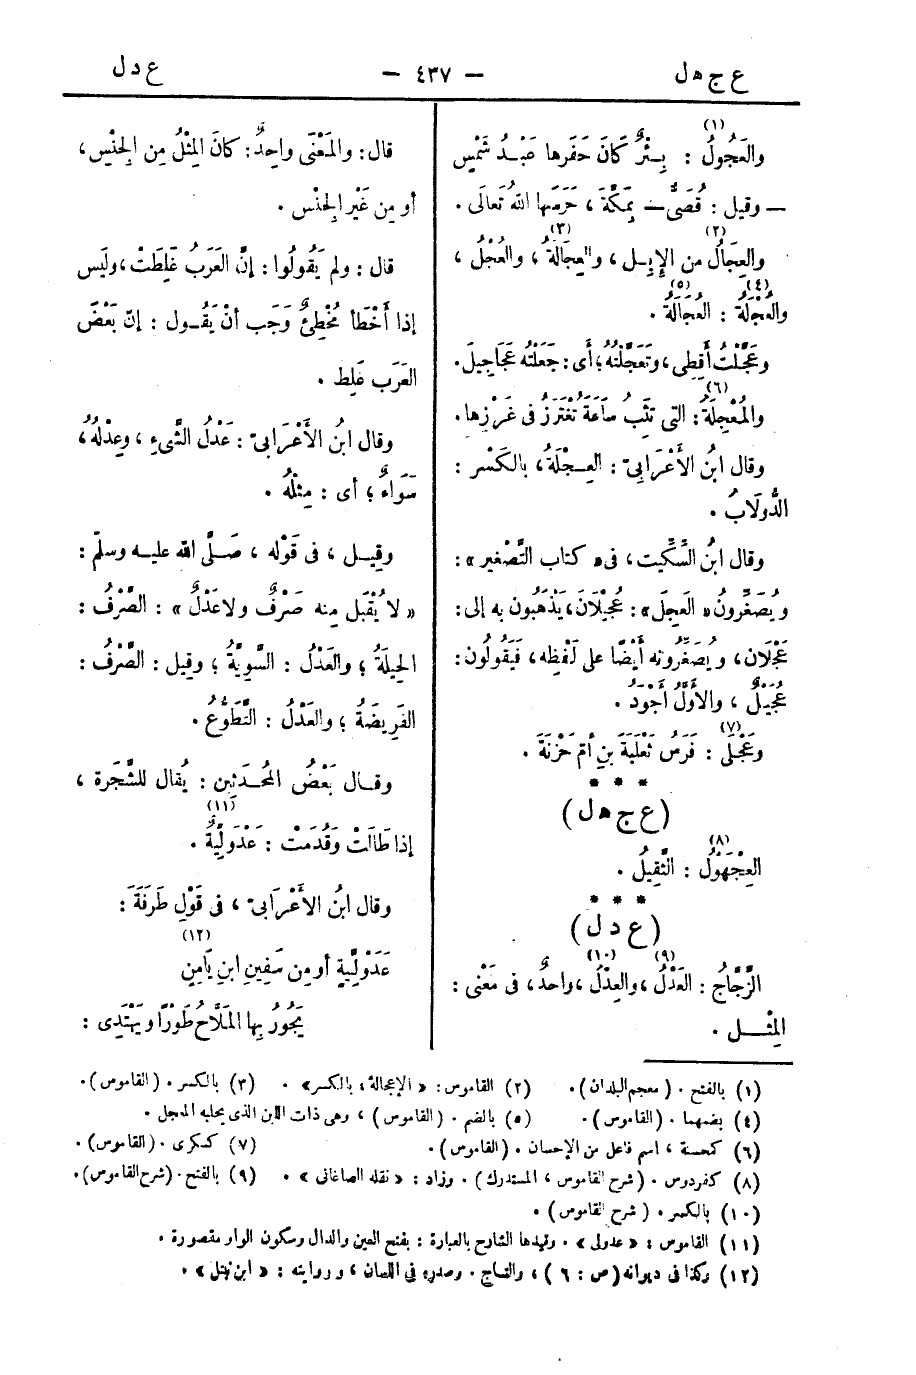 ع ج ه ل
— ٤٣٧ —
ع د ل
(١)
والعَجُولُ : بِئْرٌ كَانَ حَفَرها عَبْدُ شَمْسٍ
— وقيل : قُصَىٌّ — بِمَكَّةَ ، حَرَسَها اللهُ تَعالَى .
(٢) (٣)
والعِجَالُ من الإِبِل ، والعِجَالَةُ ، والعُجْلُ ،
(٤) (٥)
والعُجْلَةُ : العُجَالَةُ .
وعَجَّلْتُ أَقِطِى ، وتَعَجَّلْتُهُ ؛ أى : جَعَلْتُه عَجَاجِيلَ .
(٦)
والمُعْجِلَةُ : التى تَثِبُ سَاعَةَ تُغْتَرَزُ فى غَرْزِها .
وقال ابنُ الأَعْرَابىّ : العِجْلَةُ ، بالكَسْر :
الدُّولَابُ .
وقال ابنُ السِّكِّيت ، فى « كتاب التَّصْغير » :
ويُصَغِّرونُ « العَجِلَ » : عُجَيْلَانَ ، يَذْهَبُون به إلى :
عَجْلَان ، ويُصَغِّرُونَه أَيْضًا على لَفْظِه ، فَيَقُولُون :
عُجَيْلٌ ، والأَوَّلُ أَجْوَدُ .
(٧)
وعَجْلَى : فَرَسُ ثَعْلَبَةَ بنِ أُمّ حَزْنَةَ .
* * *
( ع ج ه ل )
(٨)
العِجْهَوْلُ : الثَّقِيلُ .
* * *
( ع د ل )
(٩) (١٠)
الزَّجَّاجُ : العَدْلُ ، والعِدْلُ ، واحدٌ ، فى مَعْنَى :
المِثْل .
قال : والمَعْنَى واحِدٌ : كَانَ المِثْلُ مِن الجِنْسِ ،
أو مِن غَيْرِ الجِنْس .
قال : ولم يَقُولُوا : إنَّ العَرَبُ غَلِطَتْ ، ولَيْس
إذا أَخْطَأَ مُخْطِئٌ وَجَب أنْ يَقُول : إنّ بَعْضَ
العَرَب غَلِط .
وقال ابنُ الأَعْرَابىّ : عَدْلُ الشَّىءِ ، وعِدْلُهُ ،
سَوَاءٌ ؛ أى : مِثْلُهُ .
وقِيل ، فى قَوْله ، صَلَّى الله عليه وسلّم :
« لا يُقْبَل مِنه صَرْفٌ ولا عَدْلٌ » : الصَّرْفُ :
الحِيلَةُ ؛ والعَدْلُ : السَّوِيَّةُ ؛ وقيل : الصَّرْفُ :
الفَرِيضَةُ ؛ والعَدْلُ : التَّطَوُّعُ .
وقال بَعْضُ المُحدَثِين : يُقال للشَّجَرة ،
(١١)
إذا طَالَتْ وقَدُمَتْ : عَدَوْلِيَّةٌ .
وقال ابنُ الأَعْرَابىّ ، فى قَوْلِ طَرَفَةَ :
(١٢)
عَدَوْلِيَّةٍ أو مِن سَفِينِ ابنِ يَامِنٍ
يَجُورُ بِها المَلَّاحُ طَوْرًا ويَهْتَدِى :
(١) بالفتح . ( معجم البلدان ) . (٢) القاموس : « الإعجالة ، بالكسر » . (٣) بالكسر . ( القاموس ) .
(٤) بضمهما . ( القاموس ) . (٥) بالضم . ( القاموس ) ، وهى ذات اللبن الذى يحلبه المعجل .
(٦) كمحسنة ، اسم فاعل من الإحسان . ( القاموس ) . (٧) كسكرى . ( القاموس ) .
(٨) كفردوس . ( شرح القاموس ، المستدرك ) . وزاد : « نقله الصاغانى » . (٩) بالفتح . ( شرح القاموس ) .
(١٠) بالكسر . ( شرح القاموس ) .
(١١) القاموس : « عدولى » . وقيدها الشارح بالعبارة : بفتح العين والدال وسكون الواو مقصورة .
(١٢) وكذا فى ديوانه ( ص : ٦ ) ، والتاج . وصدره فى اللسان ، وروايته : « ابن نبتل » .